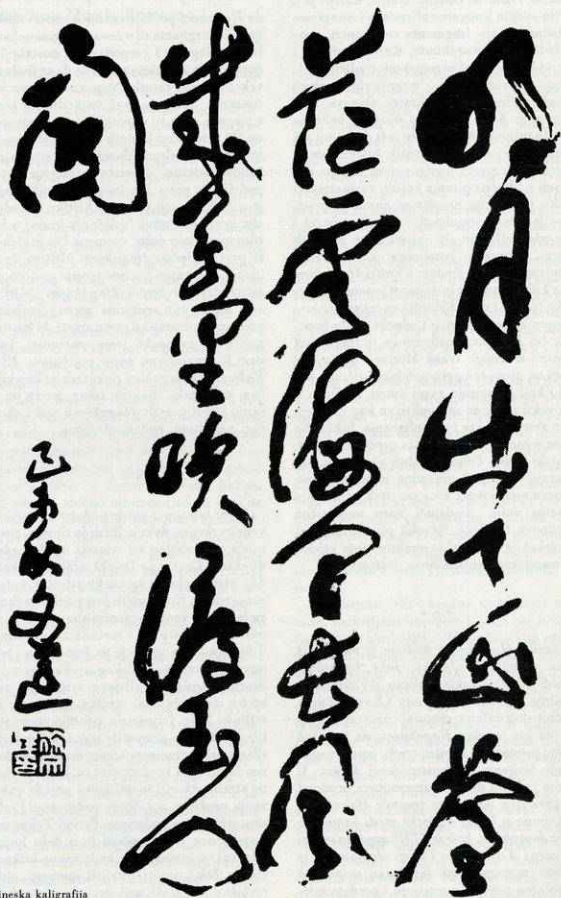 明月出天山蒼
茫雲海間長風
幾萬里吹渡玉門
關
己未秋文
ineska kaligrafija